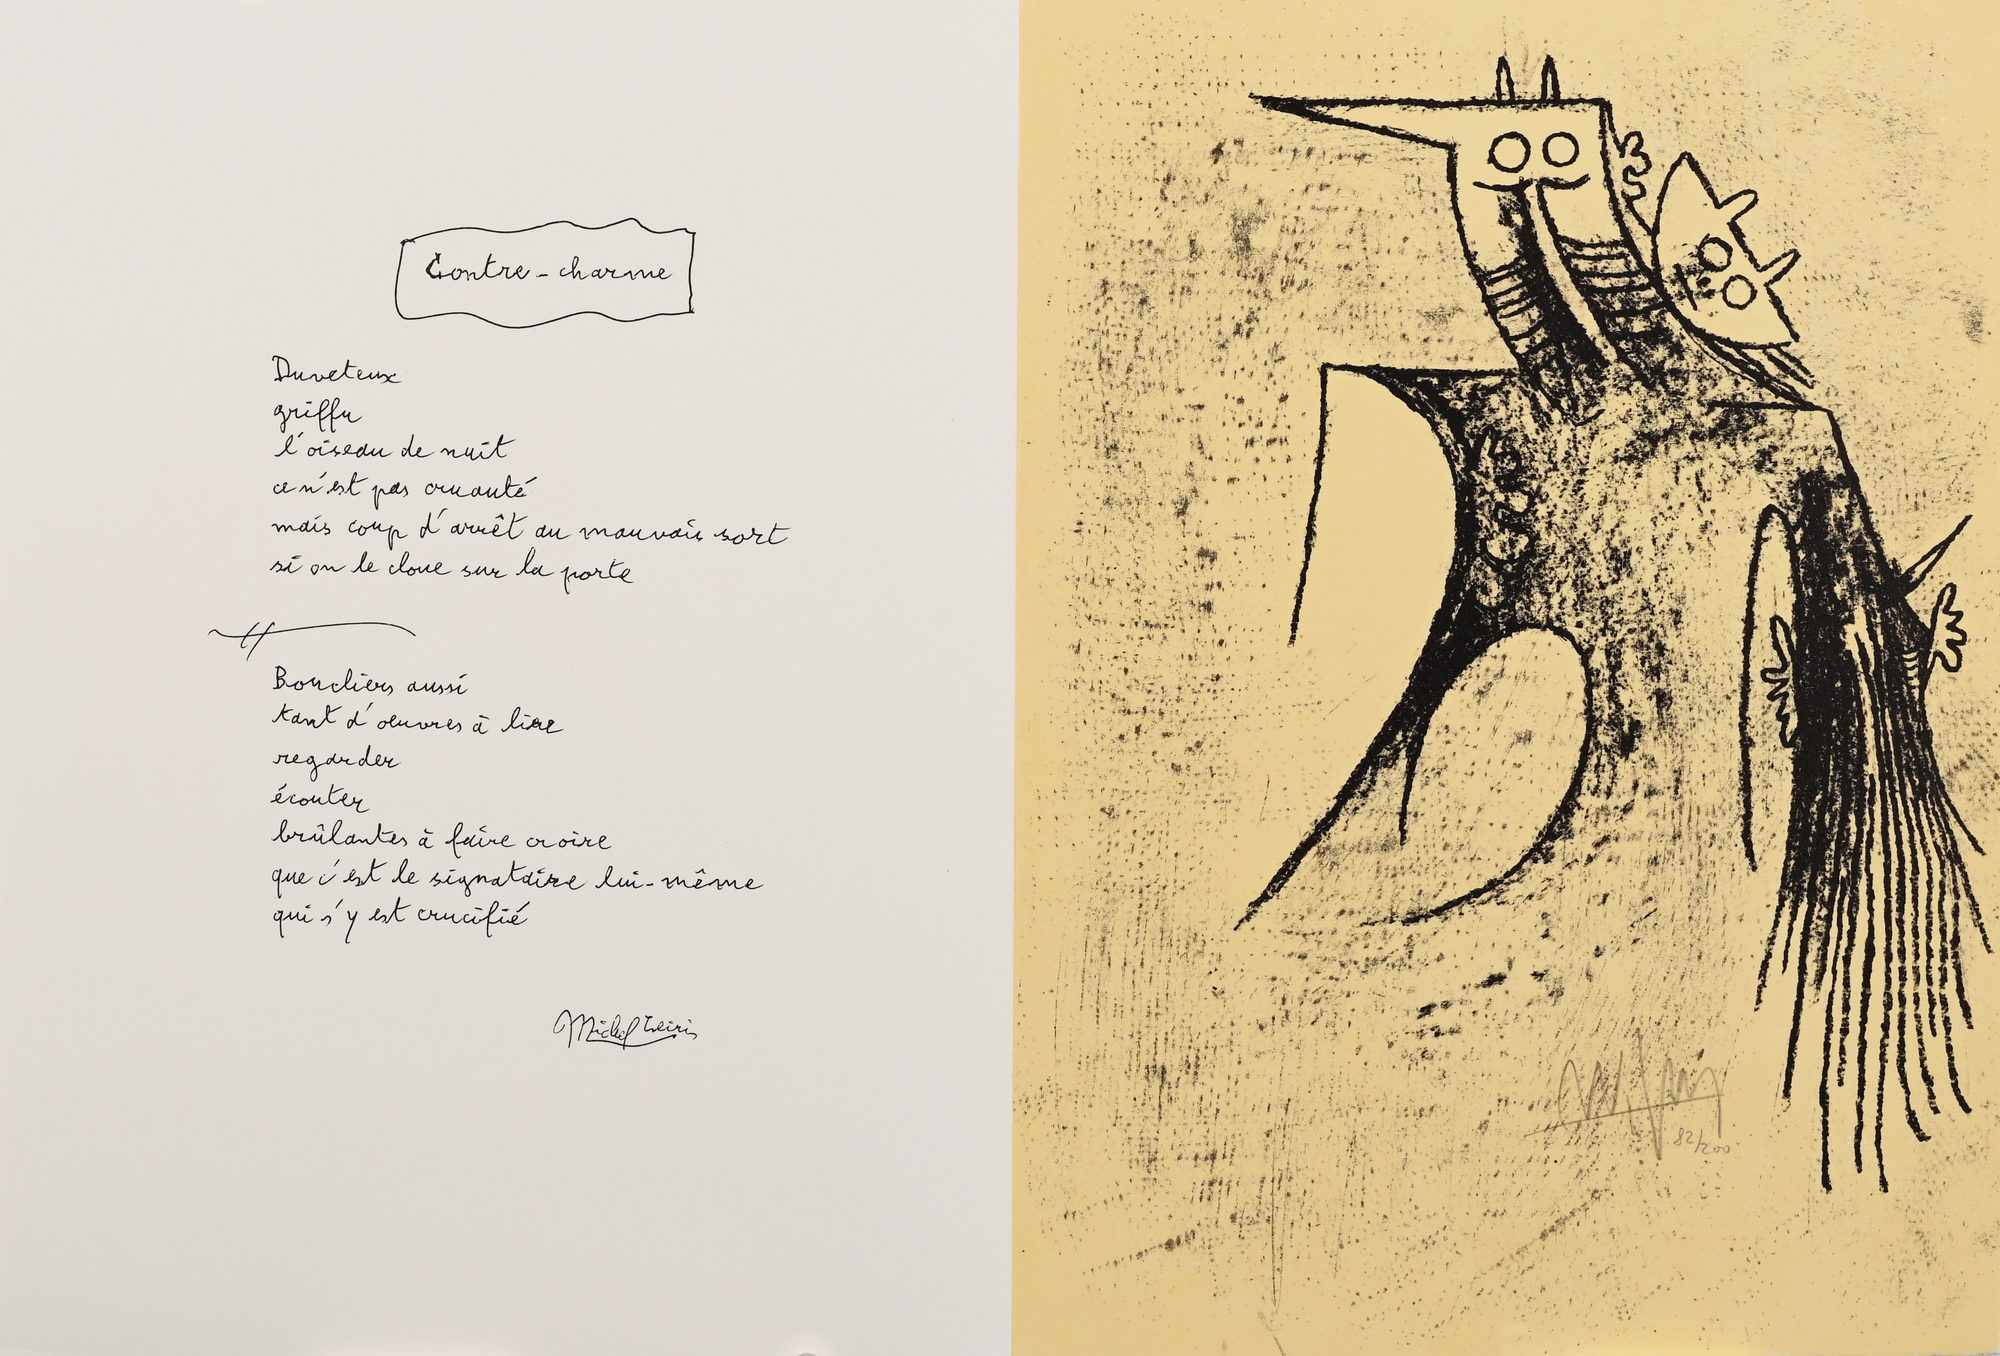 Contre-charme
Duveteux
griffu
l'oiseau de nuit
ce n'est pas cruauté
mais coup d'arrêt au mauvais sort
si on le cloue sur la porte
Boucliers aussi
tant d'oeuvres à lire
regarder
écouter
brûlantes à faire croire
que c'est le signataire lui-même
qui s'y est crucifié
Michel Leiris
82/200